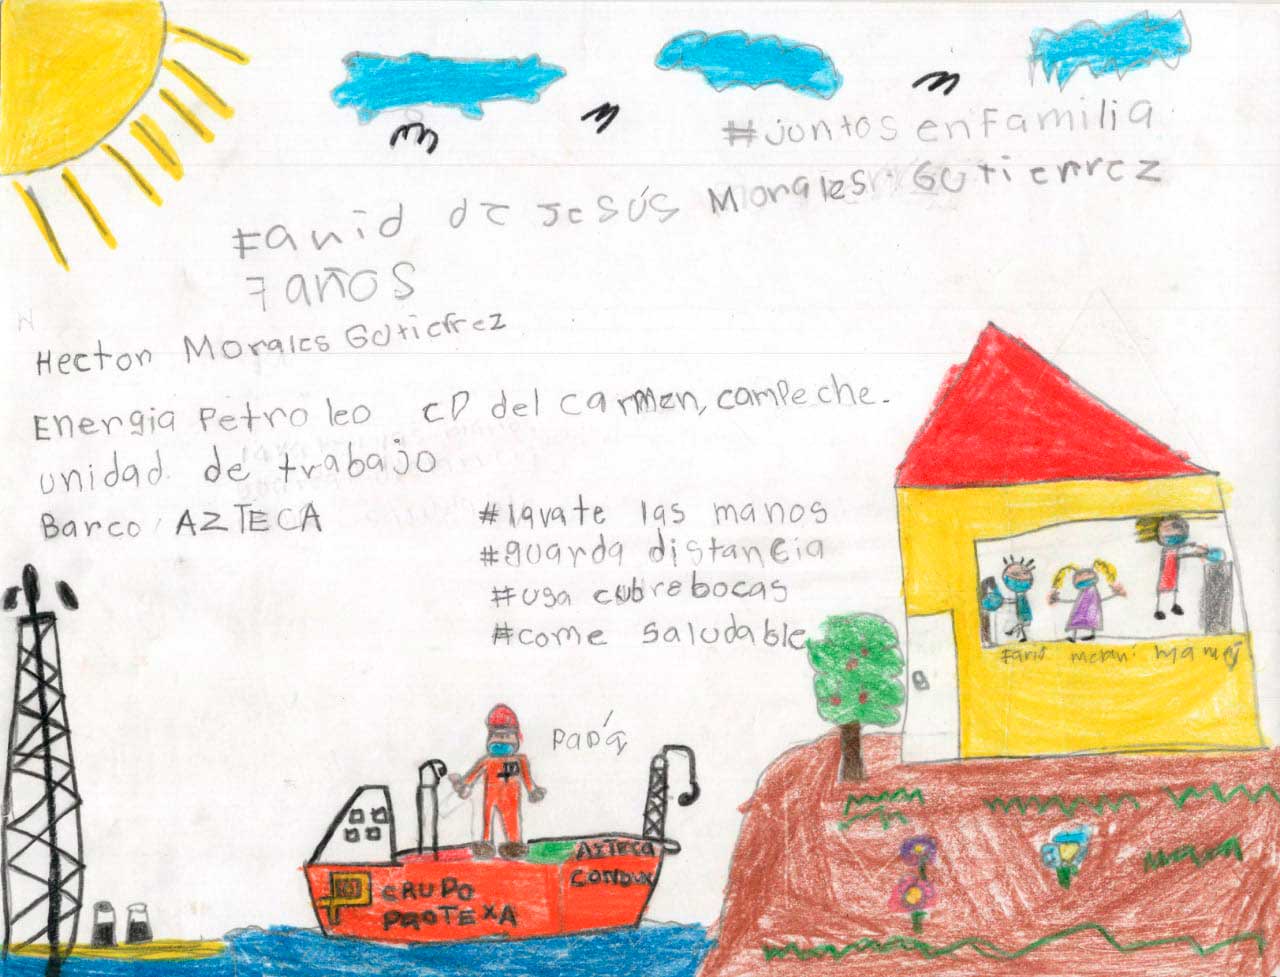 #juntos en Familia
Fanid de Jesús Morales Gutierrez
7 años
Hector Morales Gutierrez
Energia Petroleo CD del carmen, campeche.
unidad de trabajo
Barco, AZTECA
#lavate las manos
#guarda distancia
#usa cubrebocas
#come saludable
papá
AZTECA
CONDUX
GRUPO
PROTEXA